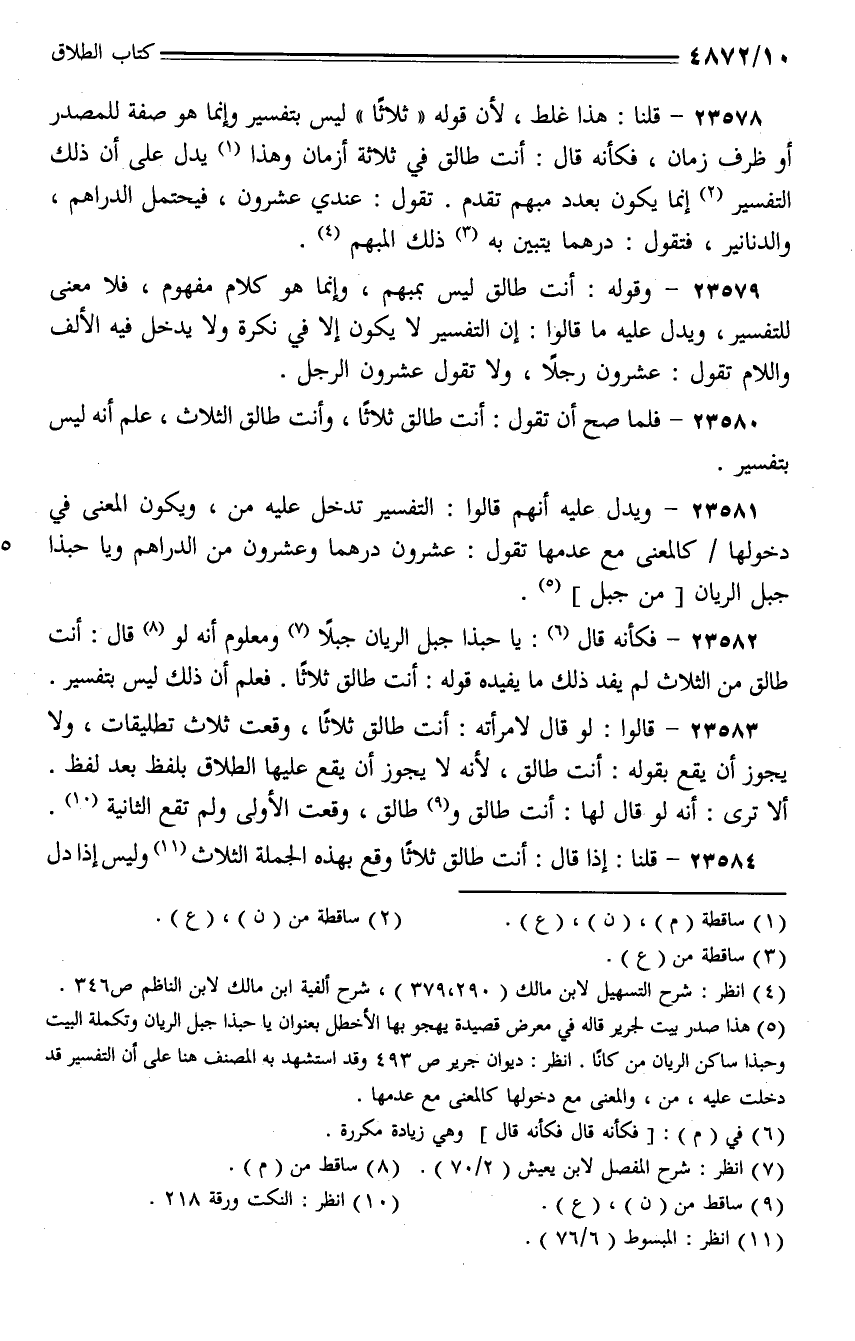 ٤٨٧٢/١٠ كتاب الطلاق
٢٣٥٧٨ - قلنا : هذا غلط ، لأن قوله « ثلاثًا » ليس بتفسير وإنما هو صفة للمصدر
أو ظرف زمان ، فكأنه قال : أنت طالق في ثلاثة أزمان وهذا (١) يدل على أن ذلك
التفسير (٢) إنما يكون بعدد مبهم تقدم . تقول : عندي عشرون ، فيحتمل الدراهم ،
والدنانير ، فتقول : درهما يتبين به (٣) ذلك المبهم (٤) .
٢٣٥٧٩ - وقوله : أنت طالق ليس بمبهم ، وإنما هو كلام مفهوم ، فلا معنى
للتفسير ، ويدل عليه ما قالوا : إن التفسير لا يكون إلا في نكرة ولا يدخل فيه الألف
واللام تقول : عشرون رجلًا ، ولا تقول عشرون الرجل .
٢٣٥٨٠ - فلما صح أن تقول : أنت طالق ثلاثًا ، وأنت طالق الثلاث ، علم أنه ليس
بتفسير .
٢٣٥٨١ - ويدل عليه أنهم قالوا : التفسير تدخل عليه من ، ويكون المعنى في
دخولها / كالمعنى مع عدمها تقول : عشرون درهما وعشرون من الدراهم ويا حبذا ٥
جبل الريان [ من جبل ] (٥) .
٢٣٥٨٢ - فكأنه قال (٦) : يا حبذا جبل الريان جبلًا (٧) ومعلوم أنه لو (٨) قال : أنت
طالق من الثلاث لم يفد ذلك ما يفيده قوله : أنت طالق ثلاثًا . فعلم أن ذلك ليس بتفسير .
٢٣٥٨٣ - قالوا : لو قال لامرأته : أنت طالق ثلاثًا ، وقعت ثلاث تطليقات ، ولا
يجوز أن يقع بقوله : أنت طالق ، لأنه لا يجوز أن يقع عليها الطلاق بلفظ بعد لفظ .
ألا ترى : أنه لو قال لها : أنت طالق و(٩) طالق ، وقعت الأولى ولم تقع الثانية (١٠) .
٢٣٥٨٤ - قلنا : إذا قال : أنت طالق ثلاثًا وقع بهذه الجملة الثلاث (١١) وليس إذا دل
(١) ساقطة ( م ) ، ( ن ) ، ( ع ) . (٢) ساقطة من ( ن ) ، ( ع ) .
(٣) ساقطة من ( ع ) .
(٤) انظر : شرح التسهيل لابن مالك ( ٣٧٩،٢٩٠ ) ، شرح ألفية ابن مالك لابن الناظم ص٣٤٦ .
(٥) هذا صدر بيت لجرير قاله في معرض قصيدة يهجو بها الأخطل بعنوان يا حبذا جبل الريان وتكملة البيت
وحبذا ساكن الريان من كانًا . انظر : ديوان جرير ص ٤٩٣ وقد استشهد به المصنف هنا على أن التفسير قد
دخلت عليه ، من ، والمعنى مع دخولها كالمعنى مع عدمها .
(٦) في ( م ) : [ فكأنه قال فكأنه قال ] وهي زيادة مكررة .
(٧) انظر : شرح المفصل لابن يعيش ( ٧٠/٢ ) . (٨) ساقط من ( م ) .
(٩) ساقط من ( ن ) ، ( ع ) . (١٠) انظر : النكت ورقة ٢١٨ .
(١١) انظر : المبسوط ( ٧٦/٦ ) .